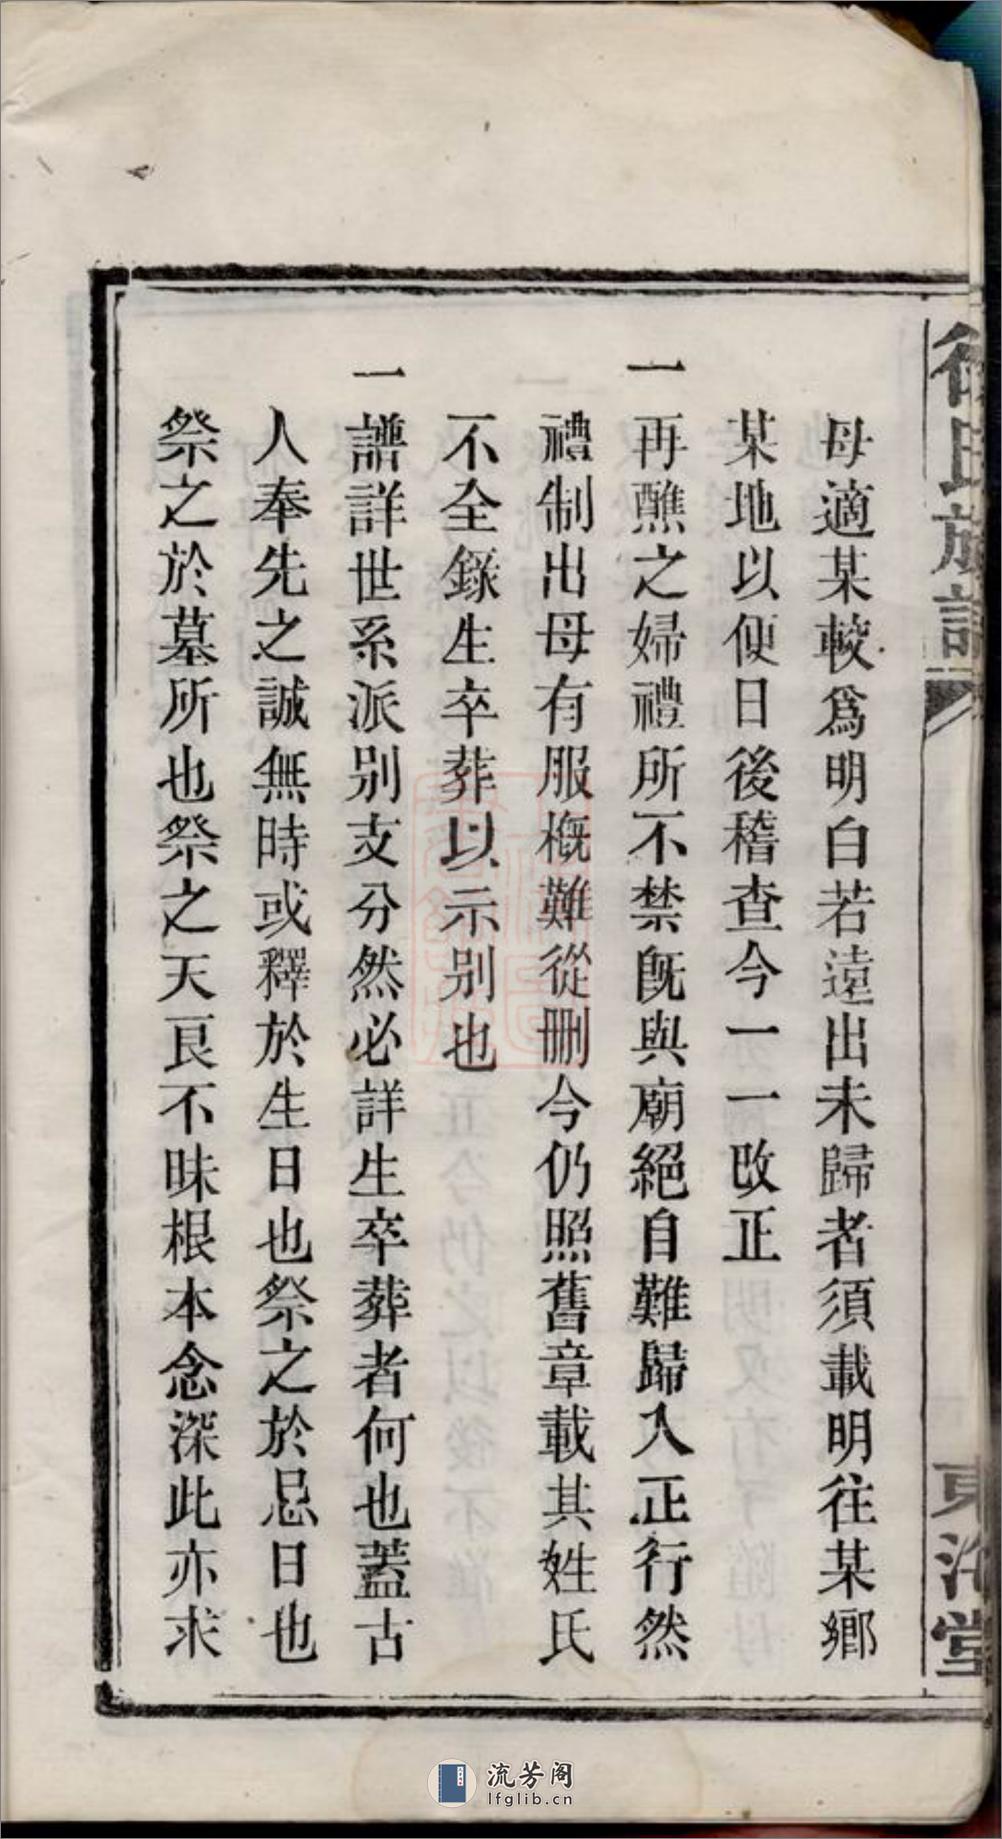 徐氏族譜
東海堂
母適某較爲明白若遠出未歸者須載明往某鄉
某地以便日後稽查今一一改正
一再醮之婦禮所不禁既與廟絕自難歸入正行然
禮制出母有服槪難從刪今仍照舊章載其姓氏
不全錄生卒葬以示別也
一譜詳世系派別支分然必詳生卒葬者何也蓋古
人奉先之誠無時或釋於生日也祭之於忌日也
祭之於墓所也祭之天良不昧根本念深此亦求
流芳阁
lfglib.cn